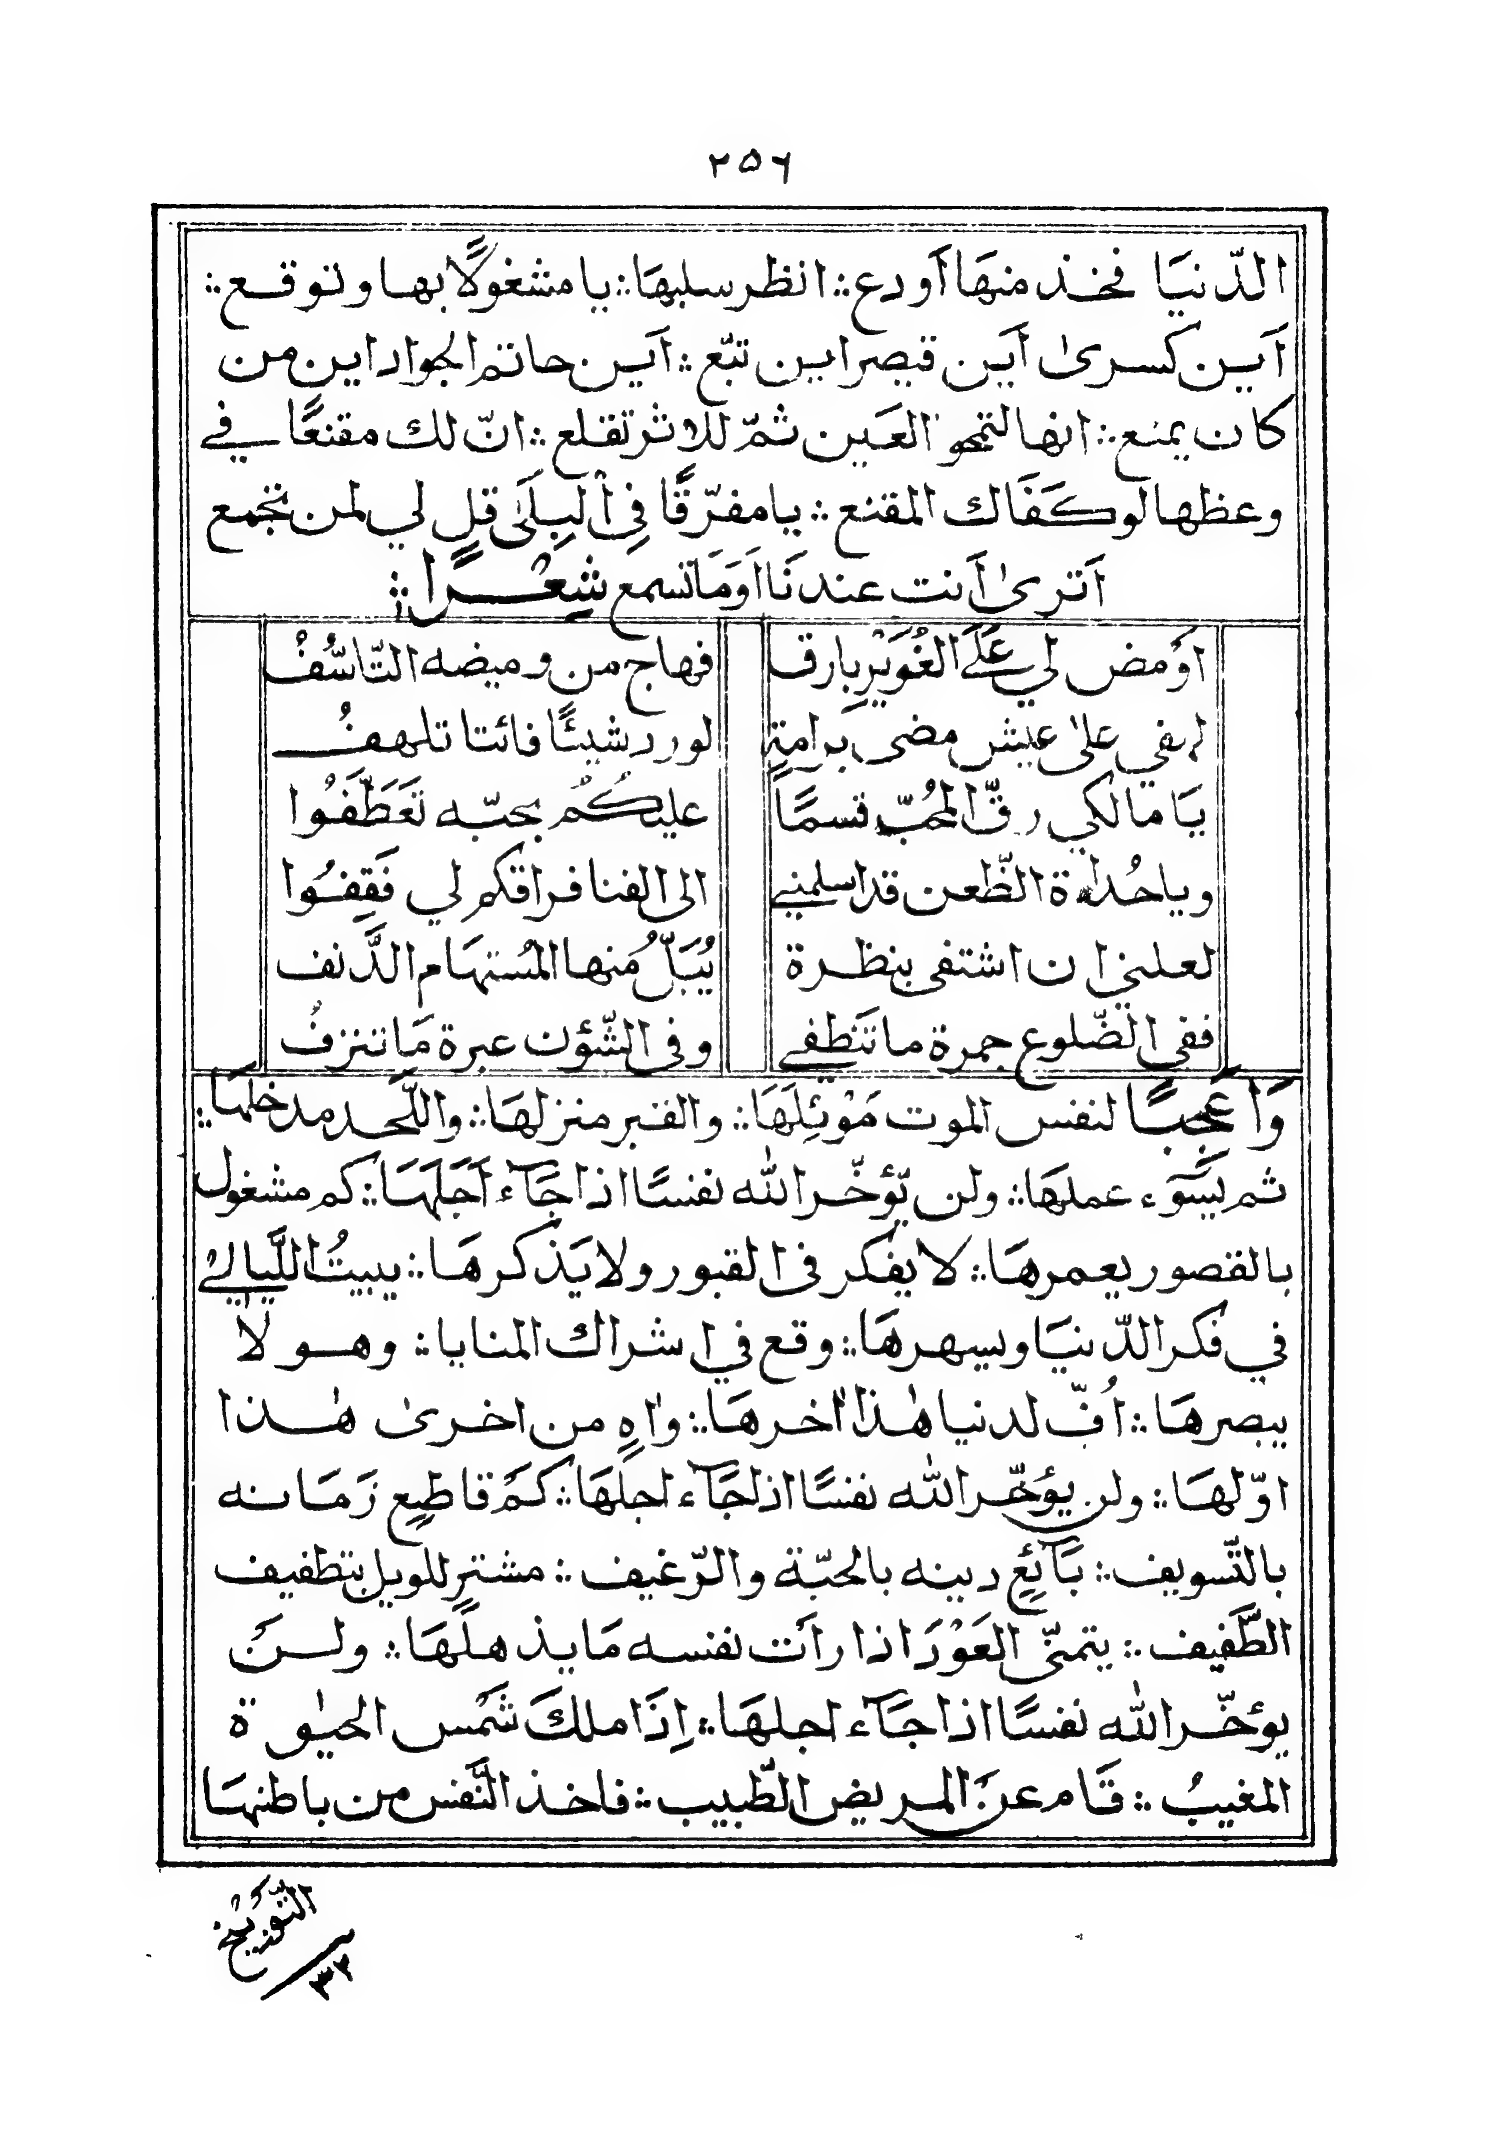 ٢٥٦
الدّنيَا فخذ منهَا أودع ؞ انظر سلبهَا ؞ يا مشغولًا بها وتوقع ؞
أين كسرىٰ أين قيصر اين تبّع ؞ أين حاتم الجواد اين من
كان يمنع ؞ انها لتمحو العَين ثمّ للاثر تقلع ؞ انّ لك مقنعًا في
وعظها لو كفَاك المقنع ؞ يا مفرّقًا فِي الْبِلَىٰ قل لي لمن تجمع
أترىٰ أنت عندنَا اَوَمَا تسمع شِعْرًا ؞
اَوْمض لي عَلَى الغُوَيْرِ بارق
فهاج من وميضه التّاسّفُ
لهفي علىٰ عيش مضى برامةٍ
لو رد شيئًا فائتا تلهفُ
يَا مالكي رقّ المحُبّ قسمًا
عليكُمْ بحبّه تَعَطَّفُوا
ويا حُداة الظّعن قد اسلمني
الى الفنا فراقكم لي فَقِفُوا
لعلني ان اشتفى بنظرة
يُبَلُّ منها المُستهَام الدَّنف
ففى الضّلوع جمرة ما تَنطفي
وفى الشّؤن عبرة مَا تنزفُ
وَاعَجَبًا لنفس الموت مَوْئِلَهَا ؞ والقبر منزلهَا ؞ واللّحد مدخلهَا ؞
ثم يَسُوٓء عملهَا ؞ ولن يّؤخّر اللّٰه نفسًا اذا جَآء أجَلَهَا ؞ كم مشغول
بالقصور يعمرهَا ؞ لا يفكر فى القبور ولا يَذكرهَا ؞ يبيتُ اللَّيالي
في فكر الدّنيَا ويسهرهَا ؞ وقع في اشراك المنايا ؞ وهو لا
يبصرهَا ؞ اُفّ لدنيا هٰذا اٰخرهَا ؞ واٰهٍ من اخرىٰ هٰذا
اوّلهَا ؞ ولن يؤخّر اللّٰه نفسًا اذا جَآء اجلهَا ؞ كم قاطِعٍ زمَانه
بالتّسويف ؞ بَآئِعٍ دينه بالحبّة والرّغيف ؞ مشترٍ للويل بتطفيف
الطَّفيف ؞ يتمنّى العَوْدَ اذا رأت نفسه مَا يذهلهَا ؞ ولن
يؤخّر اللّٰه نفسًا اذا جَآء اجلهَا ؞ إذَا ملكَ شَمْس الحيٰوة
المغيبُ ؞ قَام عن المريض الطّبيب ؞ فاخذ النَّفس من باطنهَا
٣٢